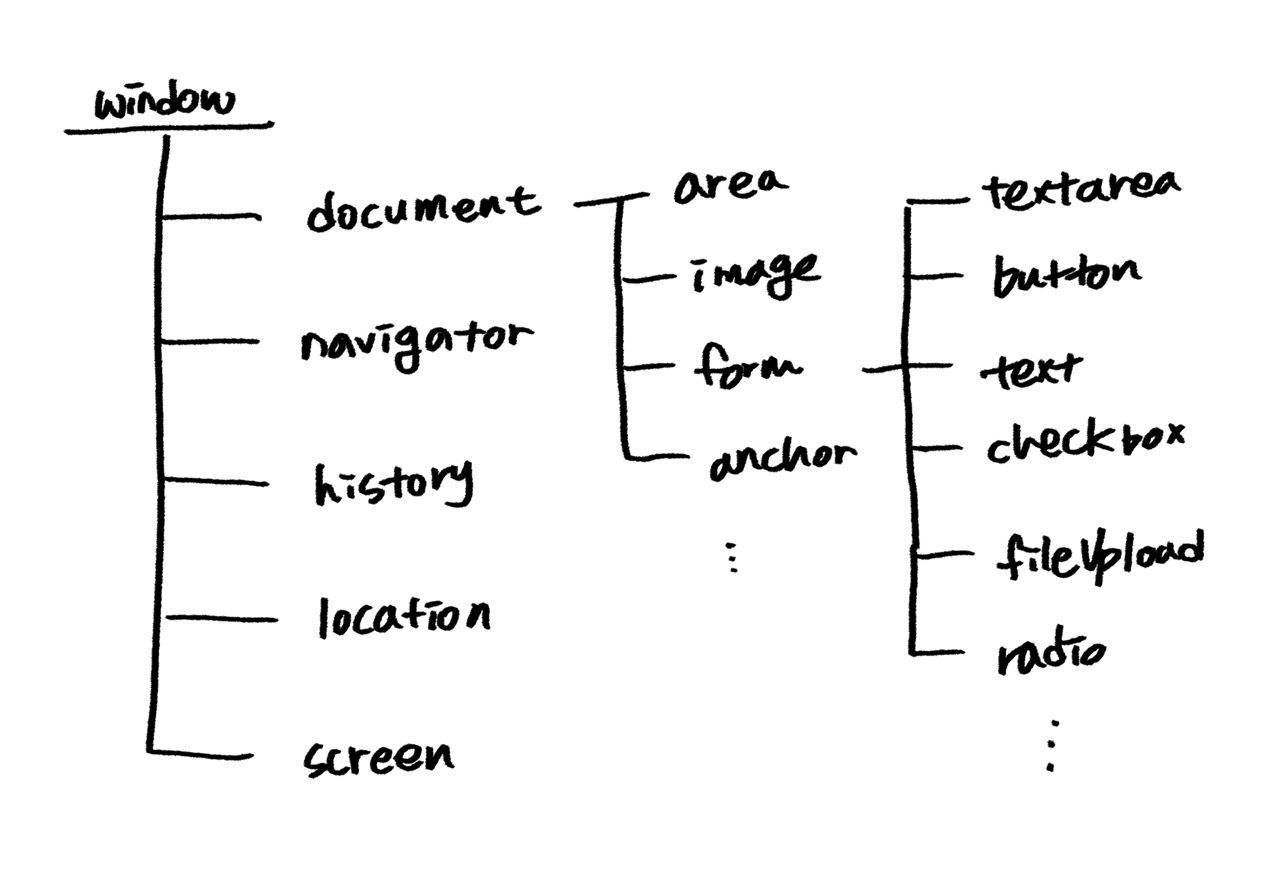 window
document
navigator
history
location
screen
area
image
form
anchor
⋮
textarea
button
text
checkbox
fileUpload
radio
⋮